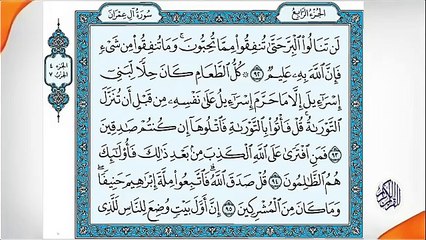 الجزء الرابع
سورة آل عمران
لَن تَنَالُوا۟ ٱلْبِرَّ حَتَّىٰ تُنفِقُوا۟ مِمَّا تُحِبُّونَ ۚ وَمَا تُنفِقُوا۟ مِن شَىْءٍ
فَإِنَّ ٱللَّهَ بِهِۦ عَلِيمٌ ٩٢ ۞ كُلُّ ٱلطَّعَامِ كَانَ حِلًّا لِّبَنِىٓ
إِسْرَٰٓءِيلَ إِلَّا مَا حَرَّمَ إِسْرَٰٓءِيلُ عَلَىٰ نَفْسِهِۦ مِن قَبْلِ أَن تُنَزَّلَ
ٱلتَّوْرَىٰةُ ۗ قُلْ فَأْتُوا۟ بِٱلتَّوْرَىٰةِ فَٱتْلُوهَآ إِن كُنتُمْ صَٰدِقِينَ
٩٣ فَمَنِ ٱفْتَرَىٰ عَلَى ٱللَّهِ ٱلْكَذِبَ مِنۢ بَعْدِ ذَٰلِكَ فَأُو۟لَٰٓئِكَ
هُمُ ٱلظَّٰلِمُونَ ٩٤ قُلْ صَدَقَ ٱللَّهُ ۗ فَٱتَّبِعُوا۟ مِلَّةَ إِبْرَٰهِيمَ حَنِيفًا
وَمَا كَانَ مِنَ ٱلْمُشْرِكِينَ ٩٥ إِنَّ أَوَّلَ بَيْتٍ وُضِعَ لِلنَّاسِ لَلَّذِى
الجزء ٤
الحزب ٧
القرآن الكريم